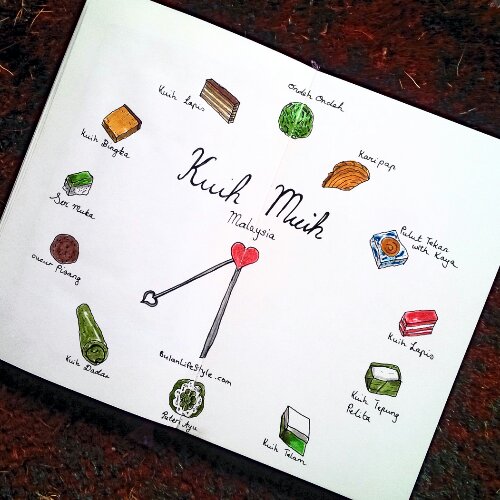 Kuih Muih
Malaysia
Ondeh Ondeh
Karipap
Pulut Tekan
with Kaya
Kuih Lapis
Kuih Tepung
Pelita
Kuih Talam
Puteri Ayu
Kuih Dadar
Cucur Pisang
Seri Muka
Kuih Bingka
Kuih Lapis
BulanLifestyle.com